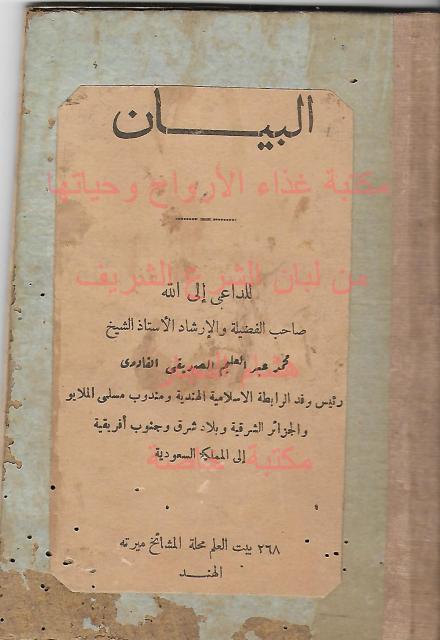 البيـــان
مكتبة غذاء الأرواح وحياتها
من لبان الشرع الشريف
للداعي إلى الله
صاحب الفضيلة والإرشاد الأستاذ الشيخ
محمد عبد العليم الصديقي القادري
رئيس وفد الرابطة الاسلامية الهندية ومندوب مسلمى الملايو
والجزائر الشرقية وبلاد شرق وجنوب أفريقية
إلى المملكة السعودية
مكتبة خاصة
٢٦٨ بيت العلم محلة المشائخ ميرته
الهنــد